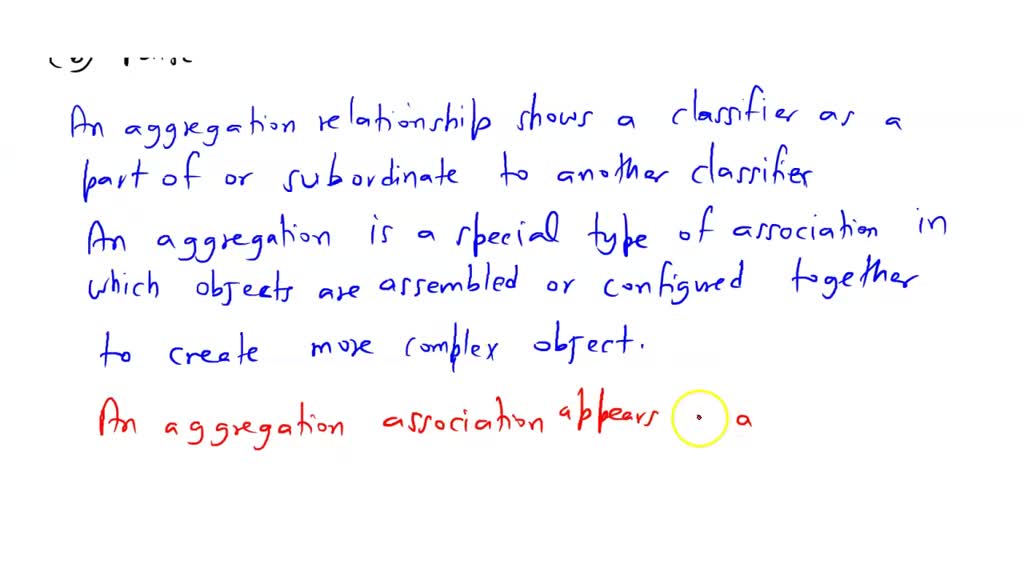 An aggregation relationship shows a classifier as a
part of or subordinate to another classifier
An aggregation is a special type of association in
which objects are assembled or configured together
to create more complex object.
An aggregation association appears a